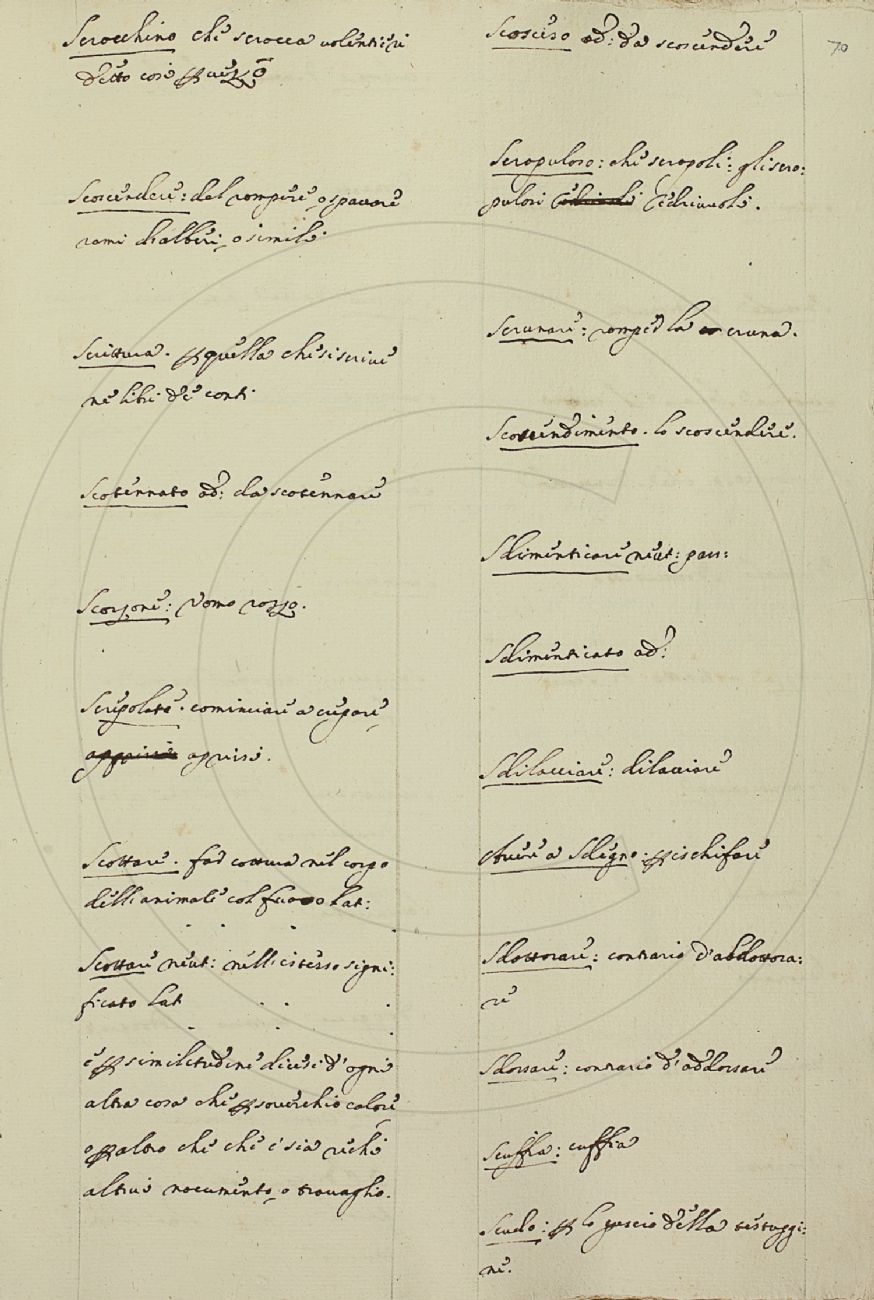 Scrocchino chi scrocca volentieri
detto così per vezzo
Scoscendere: dal rompere, o spaccare
rami d'alberi, o simili
Scrittura. per quella che si scrive
ne libri de conti
Scotennato ad: da scotennare
Scorzone: Uomo rozzo.
Screpolare. cominciare a crepare
aprirsi.
Scottare. far cottura nel corpo
delli animali col fuoco Lat:
Scottare neut: nell'istesso signi:
ficato Lat
e per similitudine dicesi d'ogni
altra cosa che per soverchio calore
o per altro che che sia rechi
altrui nocumento, o travaglio.
Scosceso ad: da scoscendere
70
Scropuloso: che scropoli: gli scro:
pulosi Cedriuoli.
Scrunare: romper la cruna.
Scoscendimento. lo scoscendere.
Sdimenticare neut: pass:
Sdimenticato ad:
Sdilacciare: dilacciare
Avere a Sdegno. per ischifare
Sdottorare: contrario d'addottora:
re
Sdossare: contrario d'addossare
Scuffia: cuffia
Scudo: per lo guscio della testuggi:
ne.